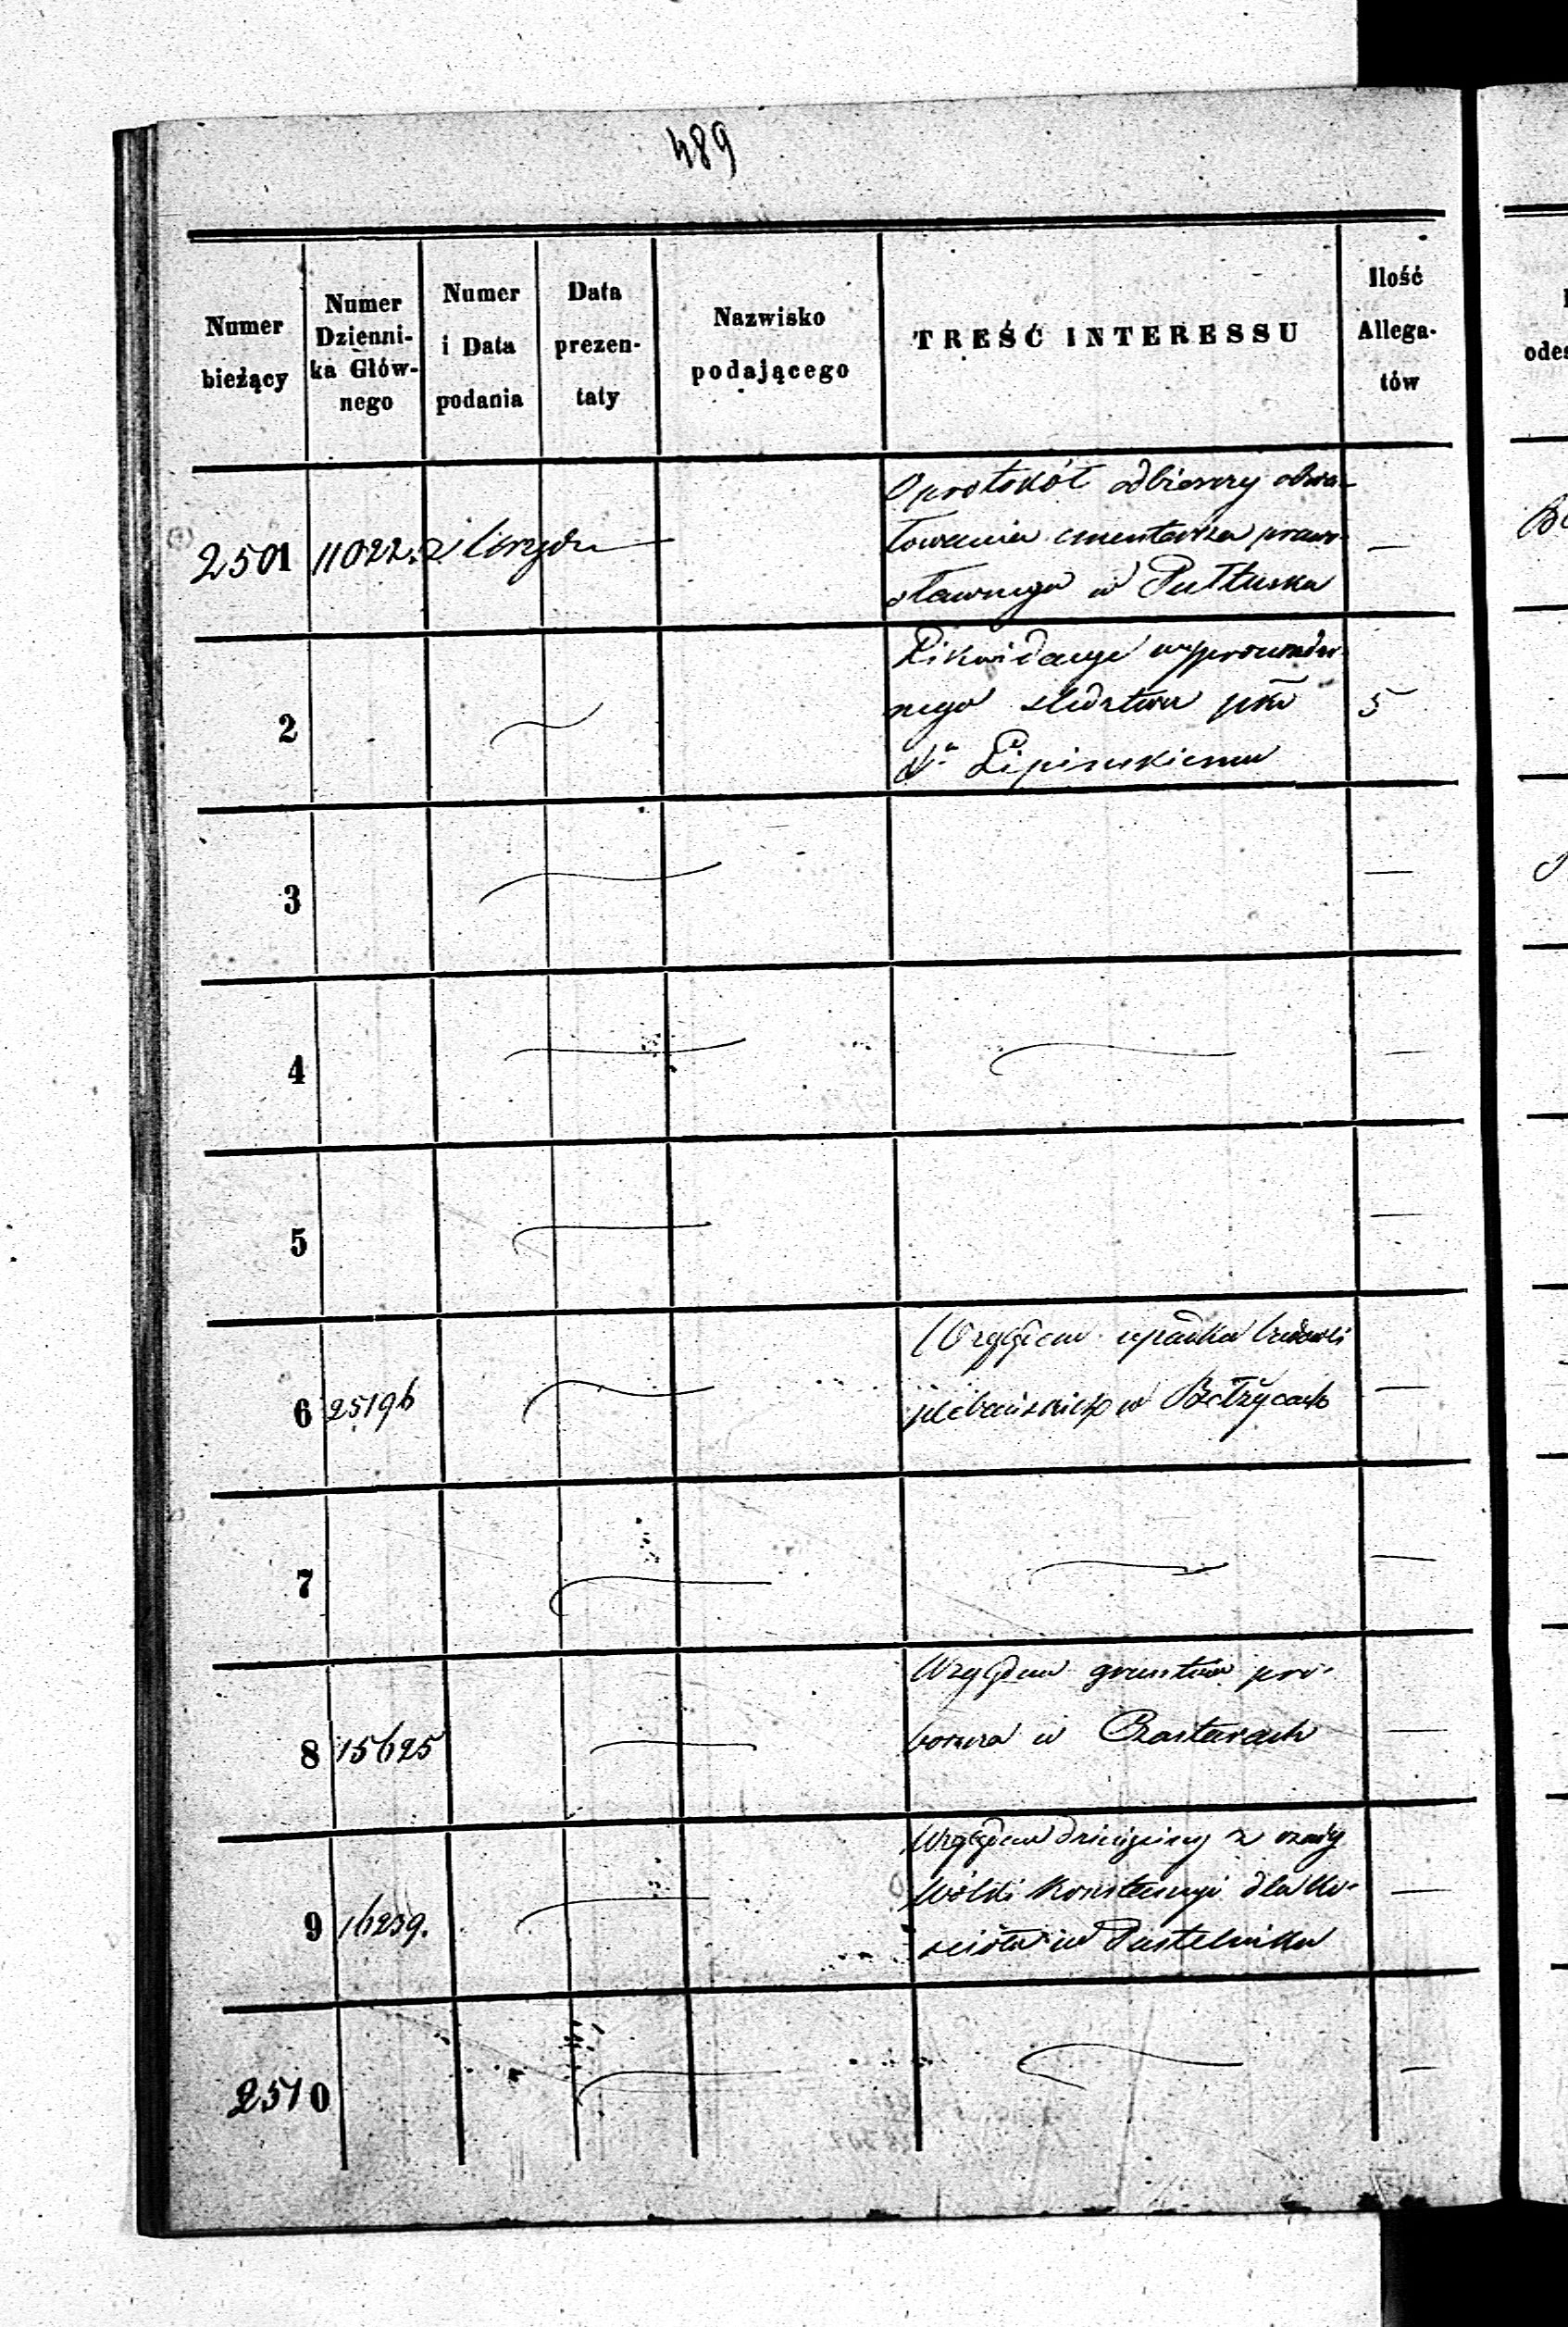 489
Numer bieżący
Numer Dzienni-
ka Głów-
nego
Numer i Data podania
Data prezen-
taty
Nazwisko podającego
TREŚĆ INTERESSU
Ilość Allega-
tów
odes
2501 11022. z Urzędu —
O protokół odbiorczy obwa-
łowania cmentarza prawo-
sławnego w Pułtusku —
2
Likwidacye wyprowadzo-
nego śledztwa pko
Lipińskiemu
5
3 —
4 —
5 —
6 25196
Względem upadku budowli
plebańskich w Bełżycach —
7 —
8 15625
Względem gruntów pro-
boszcza w Czastarach —
9 16239.
Względem dziesięciny z
Wólki dla Ko-
ścioła w Pustelniku —
2510 —